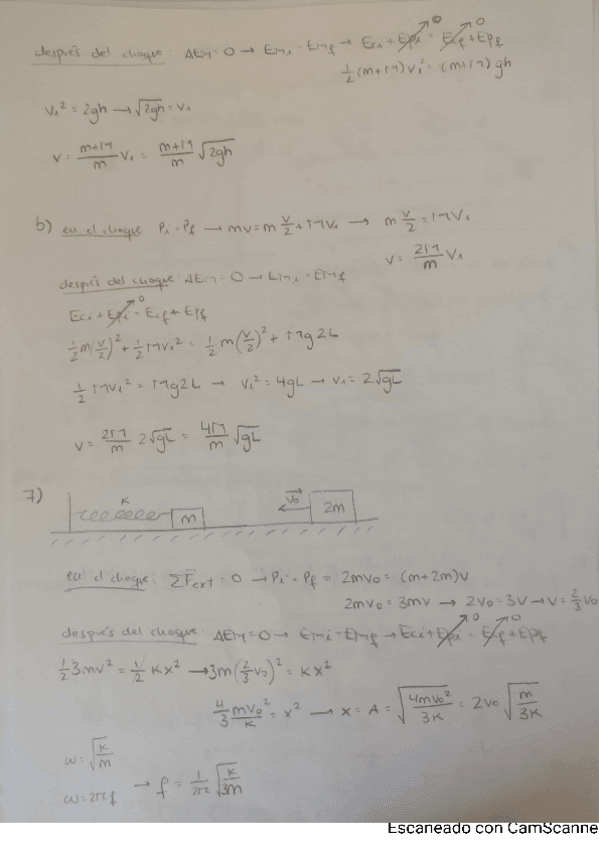 después del choque: ΔEm = 0 → Emi = Emf → Eci + Epi = Ecf + Epf
0 0
½(m+M)v₁² = (m+M)gh
v₁² = 2gh → √2gh = v₁
v = (m+M)/m v₁ = (m+M)/m √2gh
b) en el choque Pi = Pf → mv = m v/2 + Mv₁ → m v/2 = Mv₁
v = 2M/m v₁
después del choque: ΔEm = 0 → Emi = Emf
0
Eci + Epi = Ecf + Epf
½m(v/2)² + ½Mv₁² = ½m(v/2)² + Mg2L
½Mv₁² = Mg2L → v₁² = 4gL → v₁ = 2√gL
v = 2M/m 2√gL = 4M/m √gL
7)
K m v₀ 2m
en el choque: ΣF⃗ext = 0 → Pi = Pf = 2mv₀ = (m+2m)v
2mv₀ = 3mv → 2v₀ = 3v → v = ⅔v₀
después del choque: ΔEm = 0 → Emi = Emf → Eci + Epi = Ecf + Epf
0 0
½3mv² = ½Kx² → 3m(⅔v₀)² = Kx²
4/3 mv₀²/K = x² → x = A = √(4mv₀²/3K) = 2v₀ √(m/3K)
ω = √(K/m)
ω = 2πf → f = 1/2π √(K/3m)
Escaneado con CamScanne